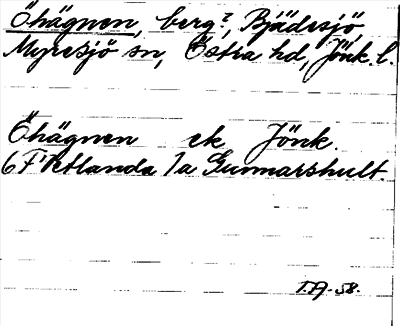 Öhägnen, berg?, Bjädesjö,
Myresjö sn, Östra hd, Jönk. l.
Öhägnen ek Jönk.
6 F Vetlanda 1a Gunnarshult.
T.A. 58.